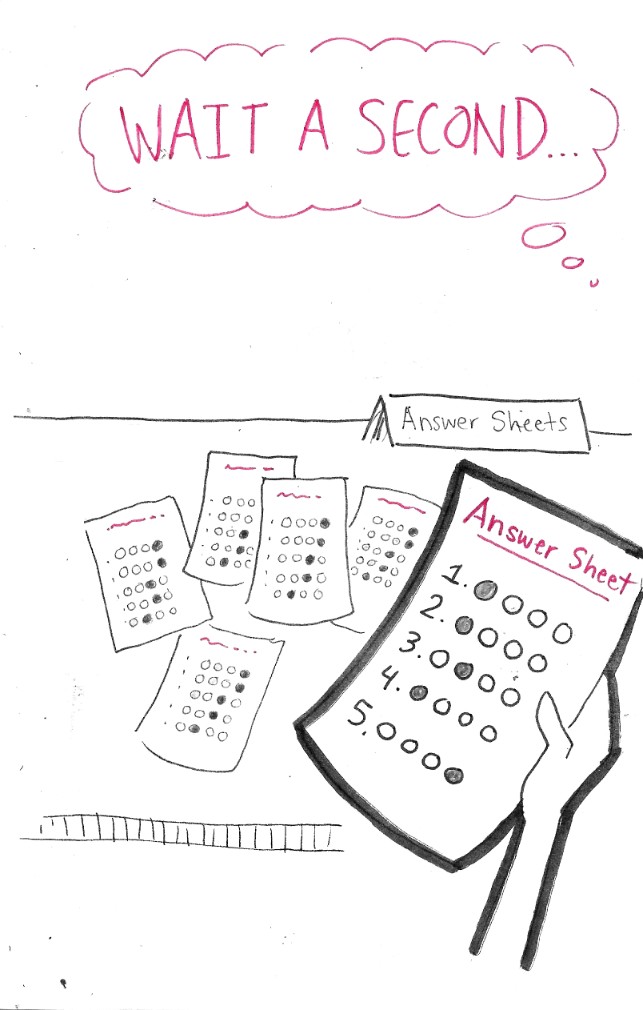 WAIT A SECOND...
Answer Sheets
Answer Sheet
1.
2.
3.
4.
5.